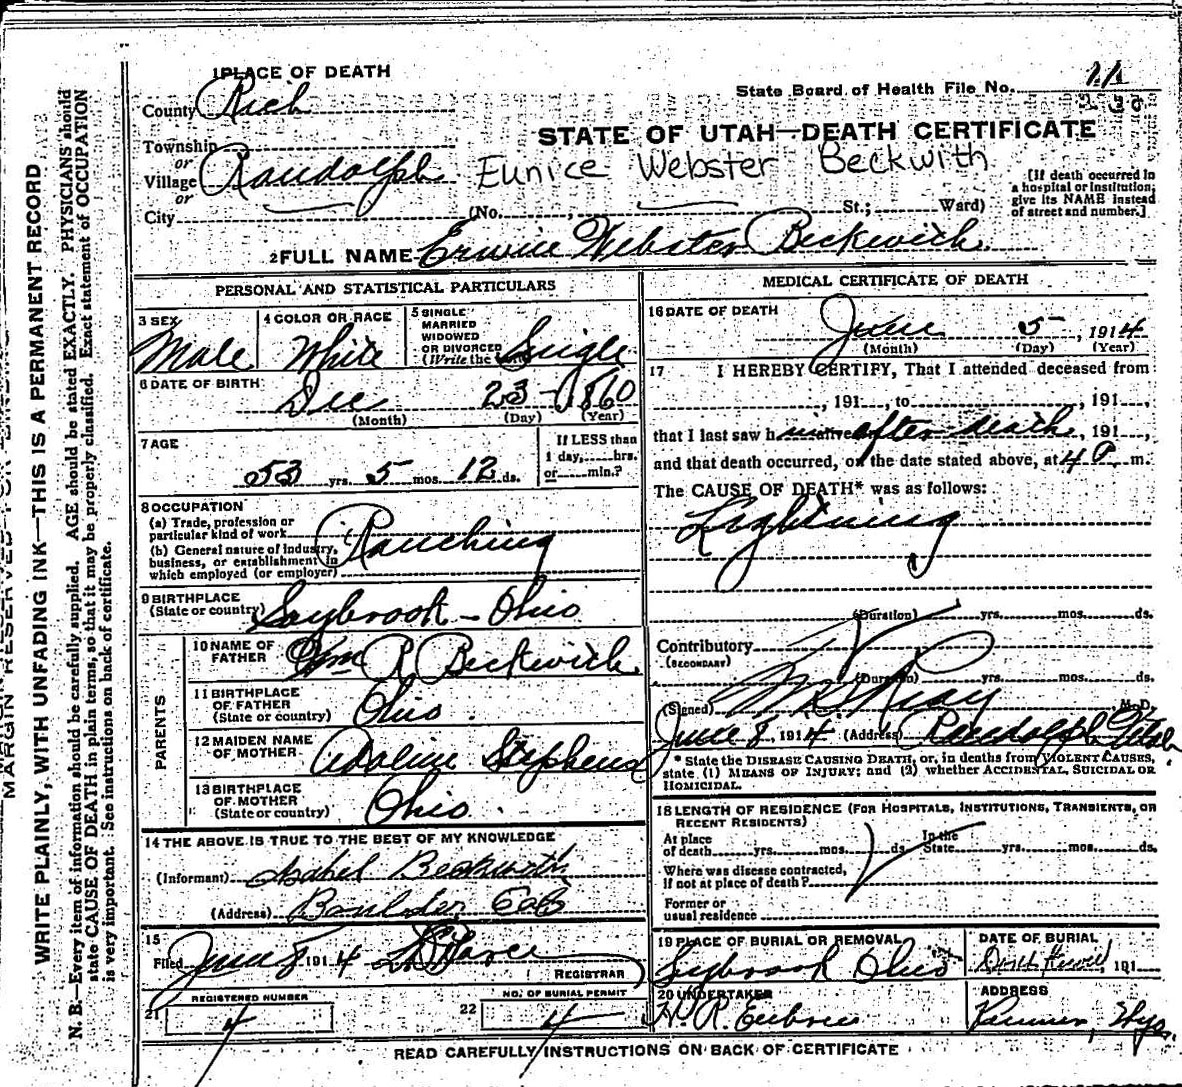 1 PLACE OF DEATH
County Rich
State Board of Health File No. 11
230
STATE OF UTAH—DEATH CERTIFICATE
Township
or
Village Randolph
Eunice Webster Beckwith
or
City (No. , St.; Ward)
[If death occurred in a hospital or institution, give its NAME instead of street and number.]
2 FULL NAME Webster Beckwith
PERSONAL AND STATISTICAL PARTICULARS
3 SEX Male
4 COLOR OR RACE White
5 SINGLE MARRIED WIDOWED OR DIVORCED (Write the word) Single
6 DATE OF BIRTH Dec 23 - 1860
(Month) (Day) (Year)
7 AGE
53 yrs. 5 mos. 12 ds.
If LESS than 1 day, hrs. or min.?
8 OCCUPATION
(a) Trade, profession or particular kind of work
(b) General nature of industry, business, or establishment in which employed (or employer)
Ranching
9 BIRTHPLACE
(State or country) Saybrook - Ohio
PARENTS
10 NAME OF FATHER Wm R Beckwith
11 BIRTHPLACE OF FATHER (State or country) Ohio.
12 MAIDEN NAME OF MOTHER Adaline Stephens
13 BIRTHPLACE OF MOTHER (State or country) Ohio.
14 THE ABOVE IS TRUE TO THE BEST OF MY KNOWLEDGE
(Informant) Isabel Beckwith
(Address) Boulder, Colo
15
Filed June 8 1914
REGISTRAR
REGISTERED NUMBER
21 4
NO. OF BURIAL PERMIT
22 4
MEDICAL CERTIFICATE OF DEATH
16 DATE OF DEATH
June 5, 1914
(Month) (Day) (Year)
17 I HEREBY CERTIFY, That I attended deceased from
, 191 , to , 191 ,
that I last saw h alive after death, 191 ,
and that death occurred, on the date stated above, at 4 P m.
The CAUSE OF DEATH* was as follows:
Lightning
(Duration) yrs. mos. ds.
Contributory
(SECONDARY)
(Duration) yrs. mos. ds.
(Signed) M.D.
June 8, 1914 (Address) Randolph Utah.
* State the DISEASE CAUSING DEATH, or, in deaths from VIOLENT CAUSES, state (1) MEANS OF INJURY; and (2) whether ACCIDENTAL, SUICIDAL OR HOMICIDAL.
18 LENGTH OF RESIDENCE (FOR HOSPITALS, INSTITUTIONS, TRANSIENTS, OR RECENT RESIDENTS)
At place of death yrs. mos. ds. In the State yrs. mos. ds.
Where was disease contracted, if not at place of death?
Former or usual residence
19 PLACE OF BURIAL OR REMOVAL
Saybrook Ohio
DATE OF BURIAL
, 191
20 UNDERTAKER
ADDRESS
READ CAREFULLY INSTRUCTIONS ON BACK OF CERTIFICATE
MARGIN RESERVED FOR BINDING
WRITE PLAINLY, WITH UNFADING INK—THIS IS A PERMANENT RECORD
N. B.—Every item of information should be carefully supplied. AGE should be stated EXACTLY. PHYSICIANS should
state CAUSE OF DEATH in plain terms, so that it may be properly classified. Exact statement of OCCUPATION
is very important. See instructions on back of certificate.